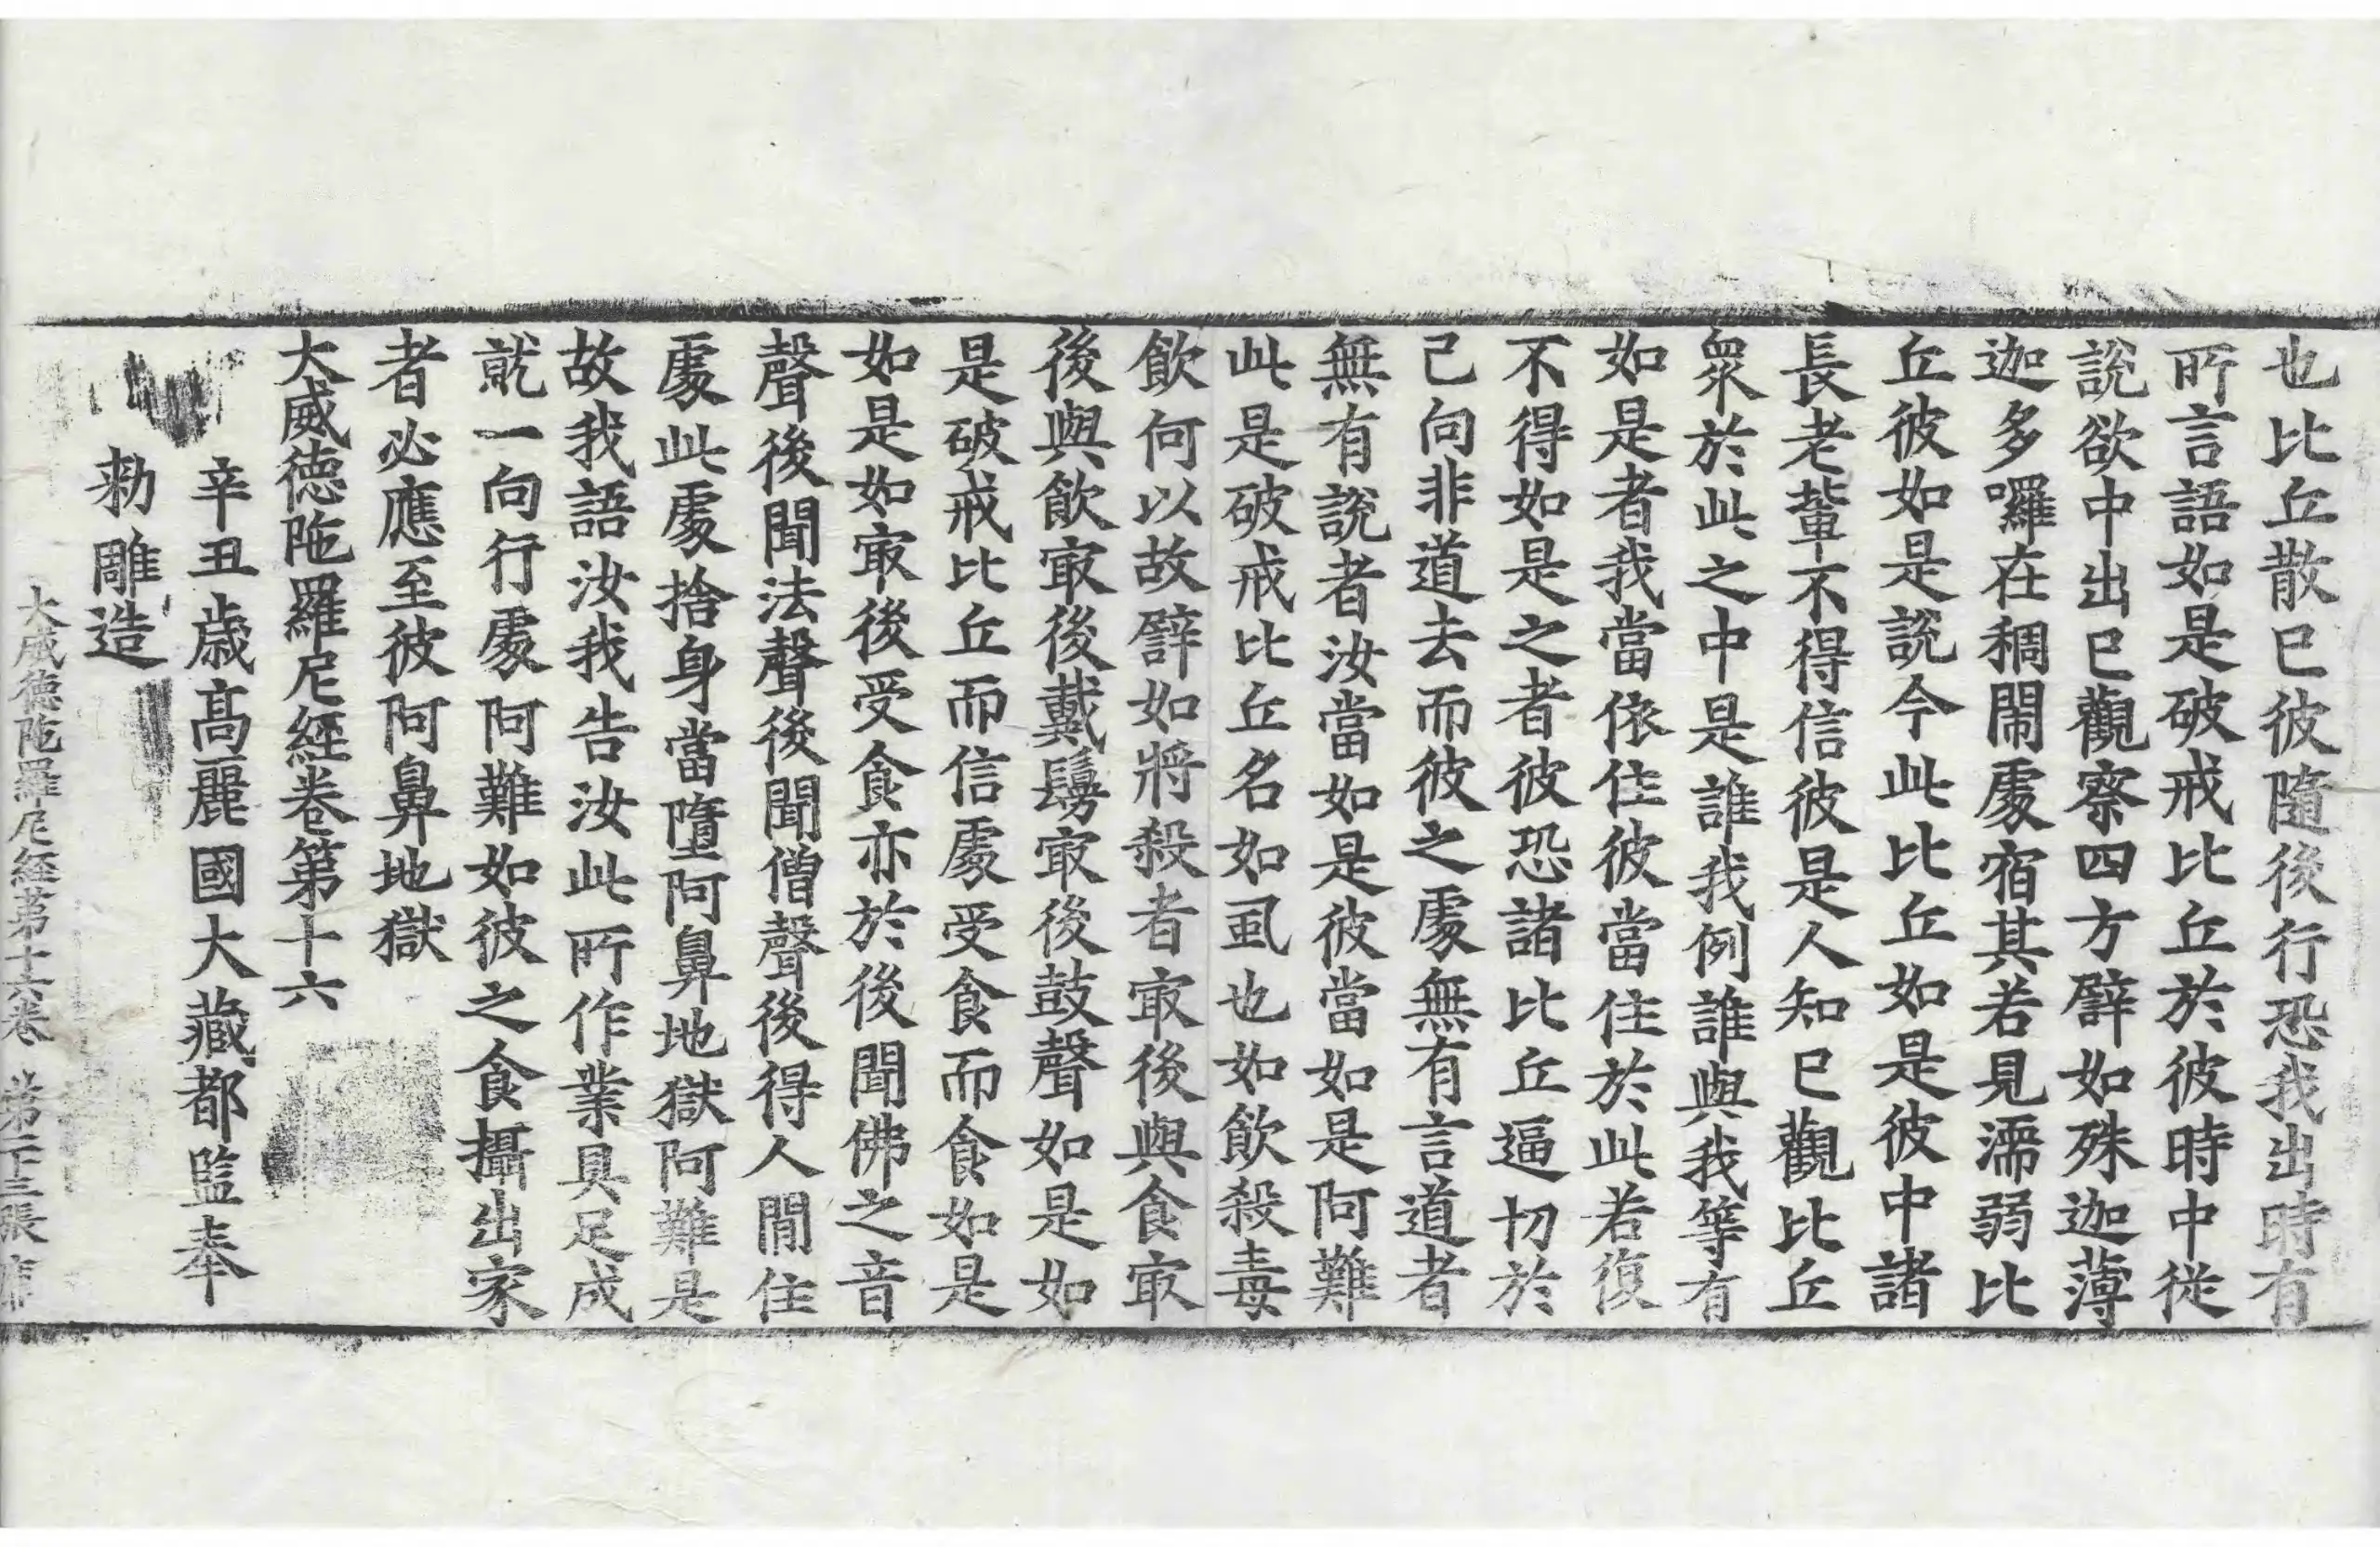 也比丘散已彼隨後行恐我出時有
所言語如是破戒比丘於彼時中從
說欲中出已觀察四方譬如殊迦薄
迦多囉在稠閙處宿其若見濡弱比
丘彼如是說今此比丘如是彼中諸
長老輩不得信彼是人知已觀比丘
衆於此之中是誰我例誰與我等有
如是者我當依住彼當住於此若復
不得如是之者彼恐諸比丘逼切於
己向非道去而彼之處無有言道者
無有說者汝當如是彼當如是阿難
此是破戒比丘名如虱也如飲殺毒
飲何以故譬如將殺者㝡後與食㝡
後與飲㝡後戴鬘㝡後鼓聲如是如
是破戒比丘而信處受食而食如是
如是如㝡後受食亦於後聞佛之音
聲後聞法聲後聞僧聲後得人閒住
處此處捨身當墮阿鼻地獄阿難是
故我語汝我告汝此所作業具足成
就一向行處阿難如彼之食攝出家
者必應至彼阿鼻地獄
大威德陁羅尼經卷第十六
辛丑歳高麗國大藏都監奉
勑雕造
大威德陁羅尼經第十六卷 第二十三張